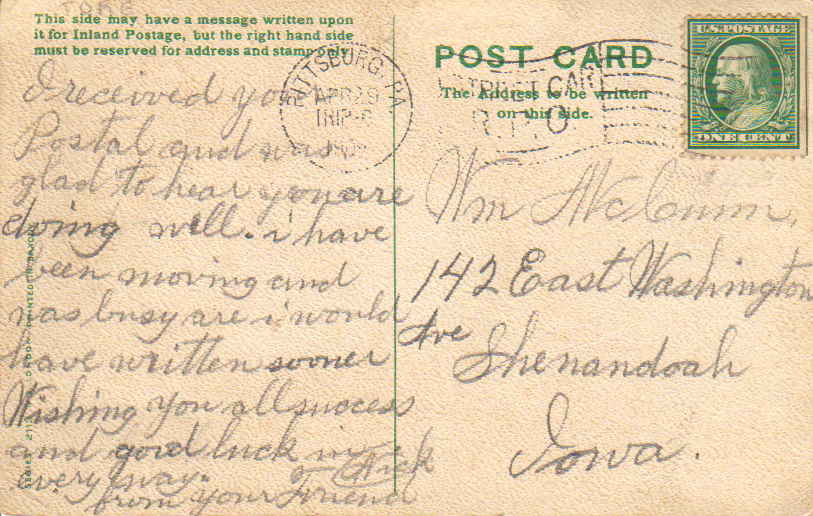 This side may have a message written upon
it for Inland Postage, but the right hand side
must be reserved for address and stamp only.
i received your
Postal and was
glad to hear you are
doing well. i have
been moving and
was busy are i would
have written sooner
Wishing you all success
and good luck in
every way.
from your Friend
Nick
POST CARD
The Address to be written
on this side.
PITTSBURG, PA.
APR 29
TRIP
STREET CAR
R.P.O
U.S. POSTAGE
ONE CENT
Wm McCunn,
142 East Washington
Ave
Shenandoah
Iowa.